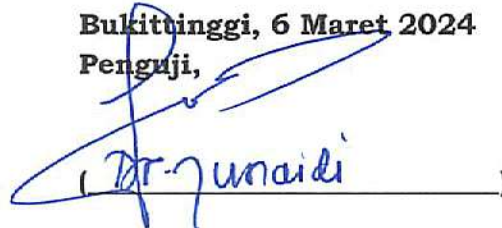 Bukittinggi, 6 Maret 2024
Penguji,
(Dr. Junaidi)